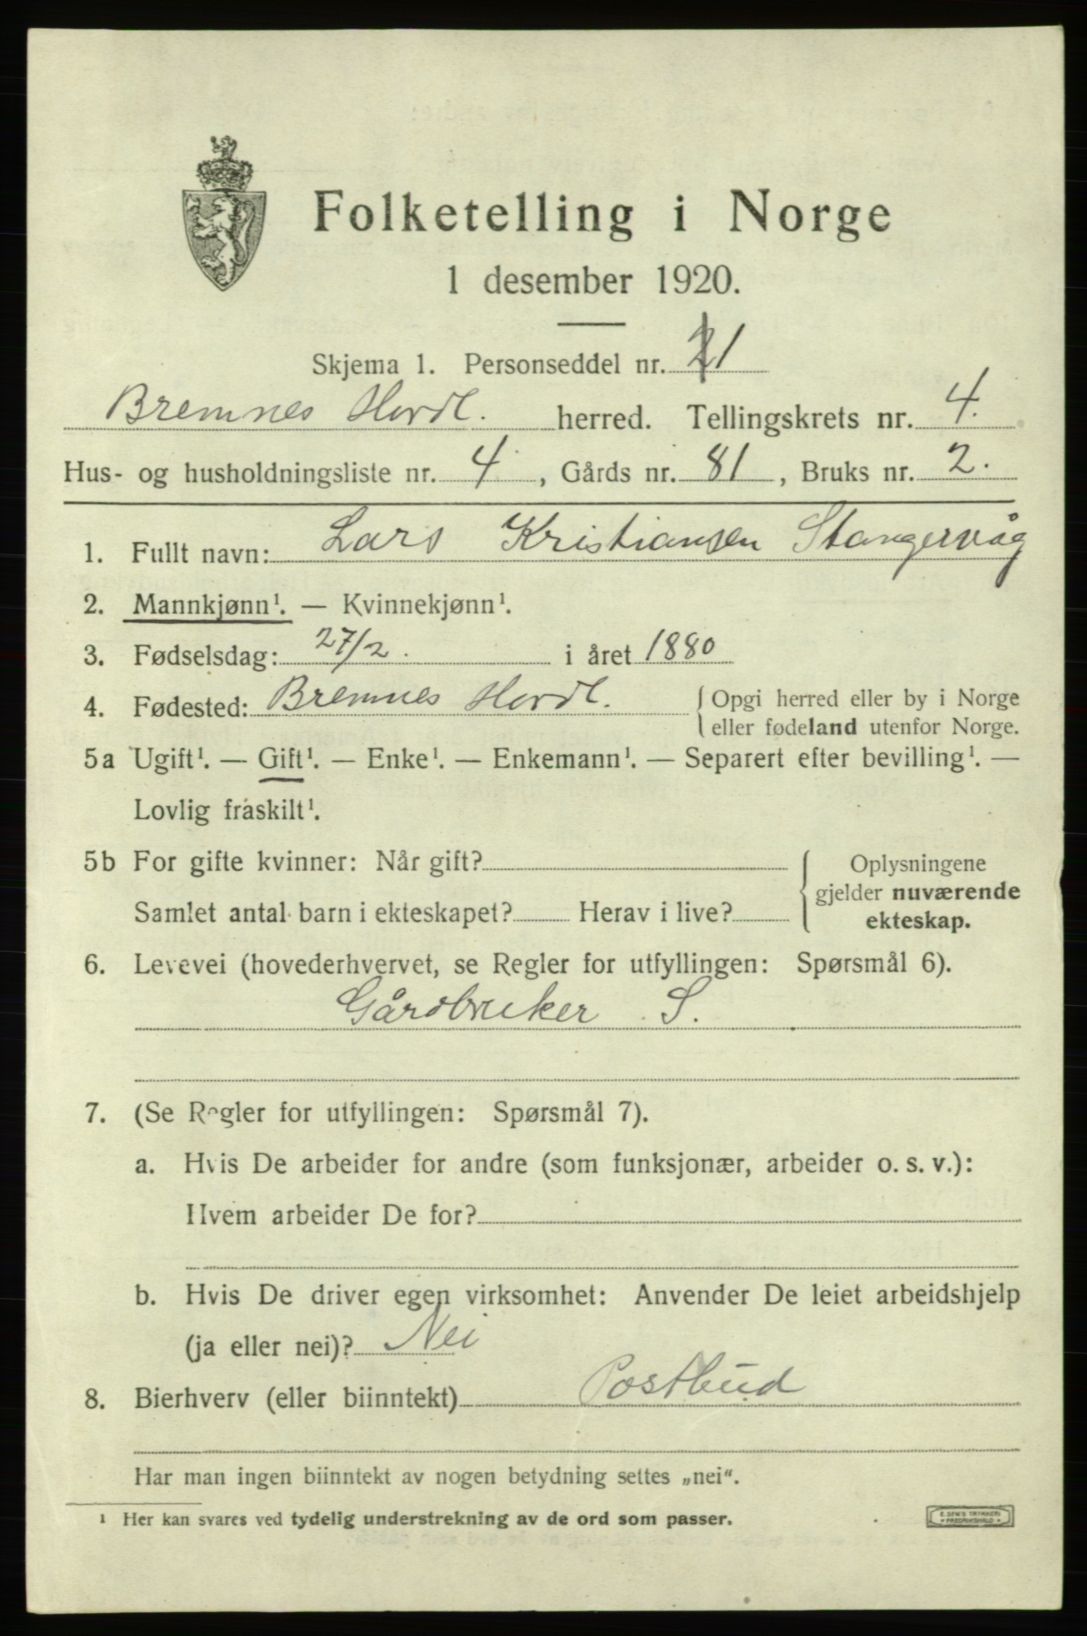 Folketelling i Norge
1 desember 1920.
Skjema 1. Personseddel nr. 1
Bremnes Hordl. herred. Tellingskrets nr. 4.
Hus- og husholdningsliste nr. 4, Gårds nr. 81, Bruks nr. 2.
1. Fullt navn: Lars Kristiansen Stangervåg
2. Mannkjønn¹. — Kvinnekjønn¹.
3. Fødselsdag: 27/2. i året 1880
4. Fødested: Bremnes Hordl. { Opgi herred eller by i Norge
eller fødeland utenfor Norge.
5a Ugift¹. — Gift¹. — Enke¹. — Enkemann¹. — Separert efter bevilling¹. —
Lovlig fraskilt¹.
5b For gifte kvinner: Når gift? { Oplysningene
gjelder nuværende
Samlet antal barn i ekteskapet? Herav i live? ekteskap.
6. Levevei (hovederhvervet, se Regler for utfyllingen: Spørsmål 6).
Gårdbruker S.
7. (Se Regler for utfyllingen: Spørsmål 7).
a. Hvis De arbeider for andre (som funksjonær, arbeider o. s. v.):
Hvem arbeider De for?
b. Hvis De driver egen virksomhet: Anvender De leiet arbeidshjelp
(ja eller nei)? Nei
8. Bierhverv (eller biinntekt) Postbud
Har man ingen biinntekt av nogen betydning settes „nei“.
¹ Her kan svares ved tydelig understrekning av de ord som passer.